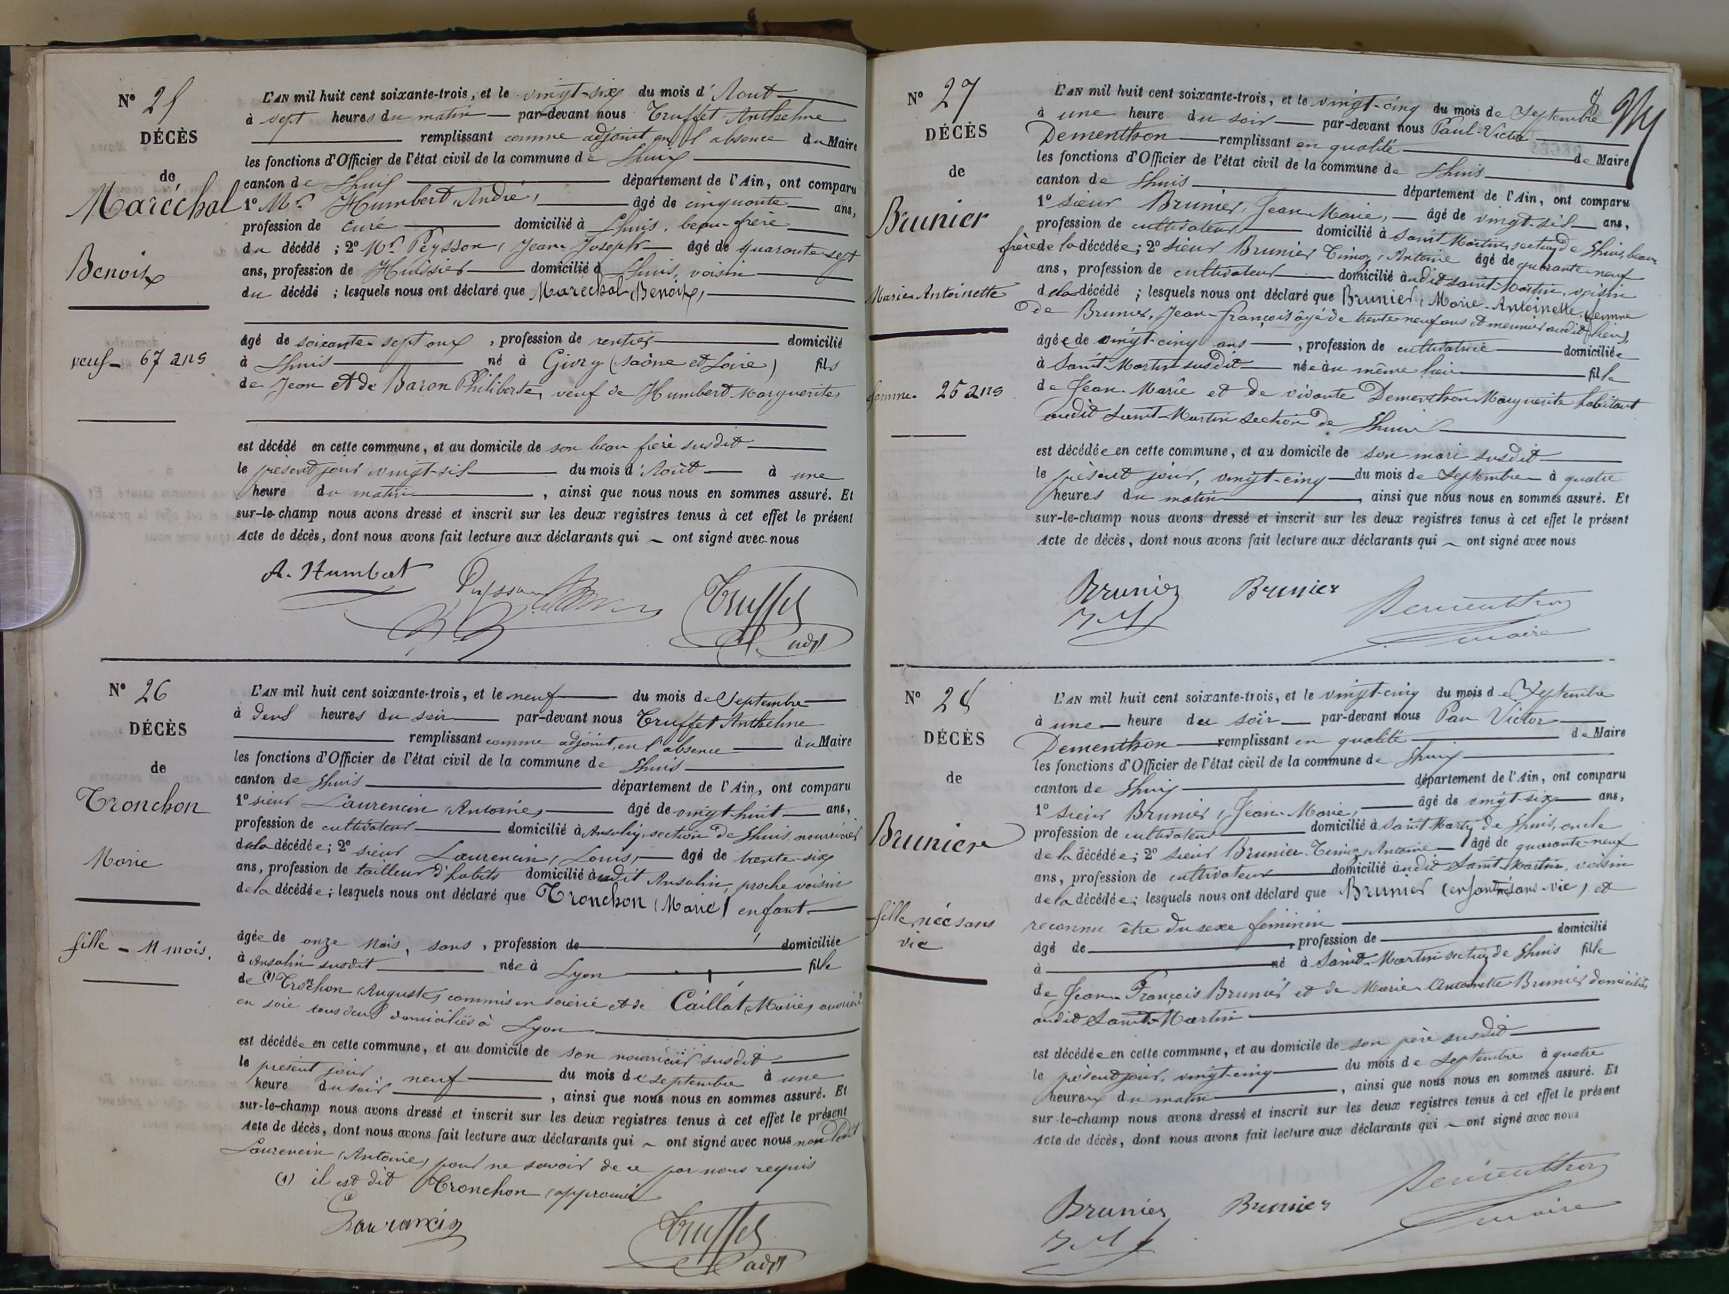 N° 25
DÉCÈS
de
Maréchal
Benoix
veuf - 67 ans
L'AN mil huit cent soixante-trois, et le vingt-six du mois d'Aout
à sept heures du matin par-devant nous Truffet Anthelme
remplissant comme adjoint en l'absence du Maire
les fonctions d'Officier de l'état civil de la commune de Lhuis
canton de Lhuis département de l'Ain, ont comparu
1° Mr. Humbert, André, âgé de cinquante ans,
profession de curé domicilié à Lhuis, beau-frère
du décédé ; 2° Mr Peysson, Jean Joseph âgé de quarante-sept
ans, profession de Huissier domicilié à Lhuis, voisin
du décédé ; lesquels nous ont déclaré que Maréchal (Benoix),
âgé de soixante-sept ans, profession de rentier domicilié
à Lhuis né à Givry (Saône et Loire) fils
de Jean et de Baron Philiberte, veuf de Humbert Marguerite,
est décédé en cette commune, et au domicile de son beau frère susdit
le présent jour vingt-six du mois d'Août à une
heure du matin, ainsi que nous nous en sommes assuré. Et
sur-le-champ nous avons dressé et inscrit sur les deux registres tenus à cet effet le présent
Acte de décès, dont nous avons fait lecture aux déclarants qui ont signé avec nous
A. Humbert Peysson Truffet
adjt
N° 26
DÉCÈS
de
Tronchon
Marie
fille - 11 mois.
L'AN mil huit cent soixante-trois, et le neuf du mois de Septembre
à deux heures du soir par-devant nous Truffet Anthelme
remplissant comme adjoint en l'absence du Maire
les fonctions d'Officier de l'état civil de la commune de Lhuis
canton de Lhuis département de l'Ain, ont comparu
1° sieur Laurencin Antoine, âgé de vingt-huit ans,
profession de cultivateur domicilié à Ansolin, section de Lhuis nourricier
de la décédée ; 2° sieur Laurencin, Louis, âgé de trente-six
ans, profession de tailleur d'habits domicilié audit Ansolin, proche voisin
de la décédée ; lesquels nous ont déclaré que Tronchon (Marie) enfant
âgée de onze mois, sans, profession de domiciliée
à Ansolin susdit née à Lyon fille
de (1) Trochon Auguste, commis en soierie et de Caillat Marie, ouvrière
en soie tous deux domiciliés à Lyon
est décédée en cette commune, et au domicile de son nourricier susdit
le présent jour, neuf du mois de Septembre à une
heure du soir, ainsi que nous nous en sommes assuré. Et
sur-le-champ nous avons dressé et inscrit sur les deux registres tenus à cet effet le présent
Acte de décès, dont nous avons fait lecture aux déclarants qui ont signé avec nous non ledit
Laurencin (Antoine) pour ne savoir de ce par nous requis
(1) il est dit Tronchon, approuvé
Laurancin Truffet
adjt
N° 27
DÉCÈS
de
Brunier
Marie-Antoinette
femme - 25 ans
8
L'AN mil huit cent soixante-trois, et le vingt-cinq du mois de Septembre
à une heure du soir par-devant nous Paul-Victor
Dementhon remplissant en qualité de Maire
les fonctions d'Officier de l'état civil de la commune de Lhuis
canton de Lhuis département de l'Ain, ont comparu
1° sieur Brunier, Jean-Marie, âgé de vingt-six ans,
profession de cultivateur domicilié à Saint Martin, section de Lhuis, beau
frère de la décédée ; 2° sieur Brunier Antoine âgé de quarante-neuf
ans, profession de cultivateur domicilié audit Saint-Martin, voisin
de la décédée ; lesquels nous ont déclaré que Brunier, Marie-Antoinette femme
de Brunier, Jean-François âgé de trente-neuf ans et meunier audit lieu
âgée de vingt-cinq ans, profession de cultivatrice domiciliée
à Saint-Martin susdit née au même lieu fille
de Jean-Marie et de vivante Dementhon Marguerite habitant
audit Saint-Martin section de Lhuis
est décédée en cette commune, et au domicile de son mari susdit
le présent jour, vingt-cinq du mois de Septembre à quatre
heures du matin, ainsi que nous nous en sommes assuré. Et
sur-le-champ nous avons dressé et inscrit sur les deux registres tenus à cet effet le présent
Acte de décès, dont nous avons fait lecture aux déclarants qui ont signé avec nous
Brunier Brunier Dementhon
J M maire
N° 28
DÉCÈS
de
Brunier
fille, née sans
vie
L'AN mil huit cent soixante-trois, et le vingt-cinq du mois de Septembre
à une heure du soir par-devant nous Paul Victor
Dementhon remplissant en qualité de Maire
les fonctions d'Officier de l'état civil de la commune de Lhuis
canton de Lhuis département de l'Ain, ont comparu
1° sieur Brunier, Jean-Marie, âgé de vingt-six ans,
profession de cultivateur domicilié à Saint Martin de Lhuis, oncle
de la décédée ; 2° sieur Brunier Antoine âgé de quarante-neuf
ans, profession de cultivateur domicilié audit Saint Martin, voisin
de la décédée ; lesquels nous ont déclaré que Brunier (enfant sans vie) et
reconnu être du sexe féminin
âgé de, profession de domicilié
à né à Saint-Martin section de Lhuis fille
de Jean-François Brunier et de Marie-Antoinette Brunier domiciliés
audit Saint-Martin
est décédée en cette commune, et au domicile de son père susdit
le présent jour, vingt-cinq du mois de Septembre à quatre
heures du matin, ainsi que nous nous en sommes assuré. Et
sur-le-champ nous avons dressé et inscrit sur les deux registres tenus à cet effet le présent
Acte de décès, dont nous avons fait lecture aux déclarants qui ont signé avec nous
Brunier Brunier Dementhon
J M maire